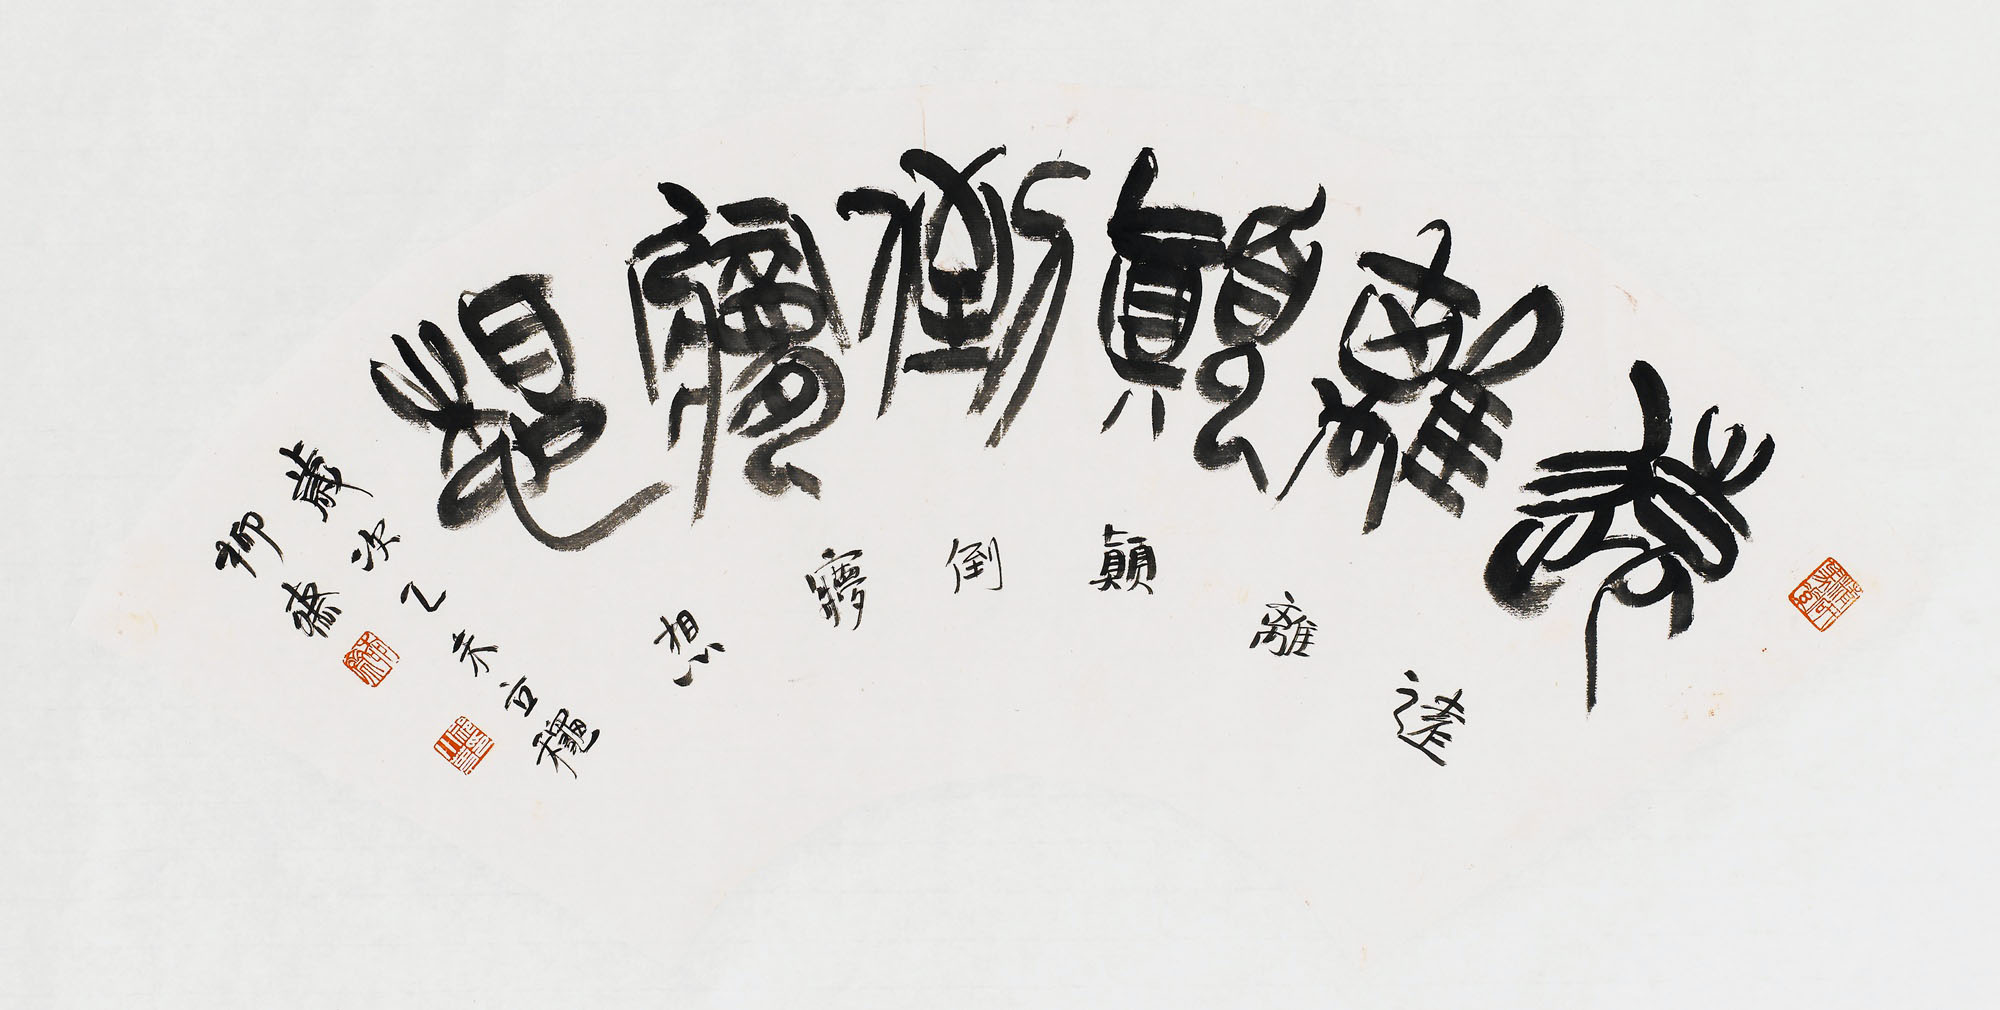 遠離顛倒㝱想
遠離顛倒㝱想
歲次乙未立龝
柳齋